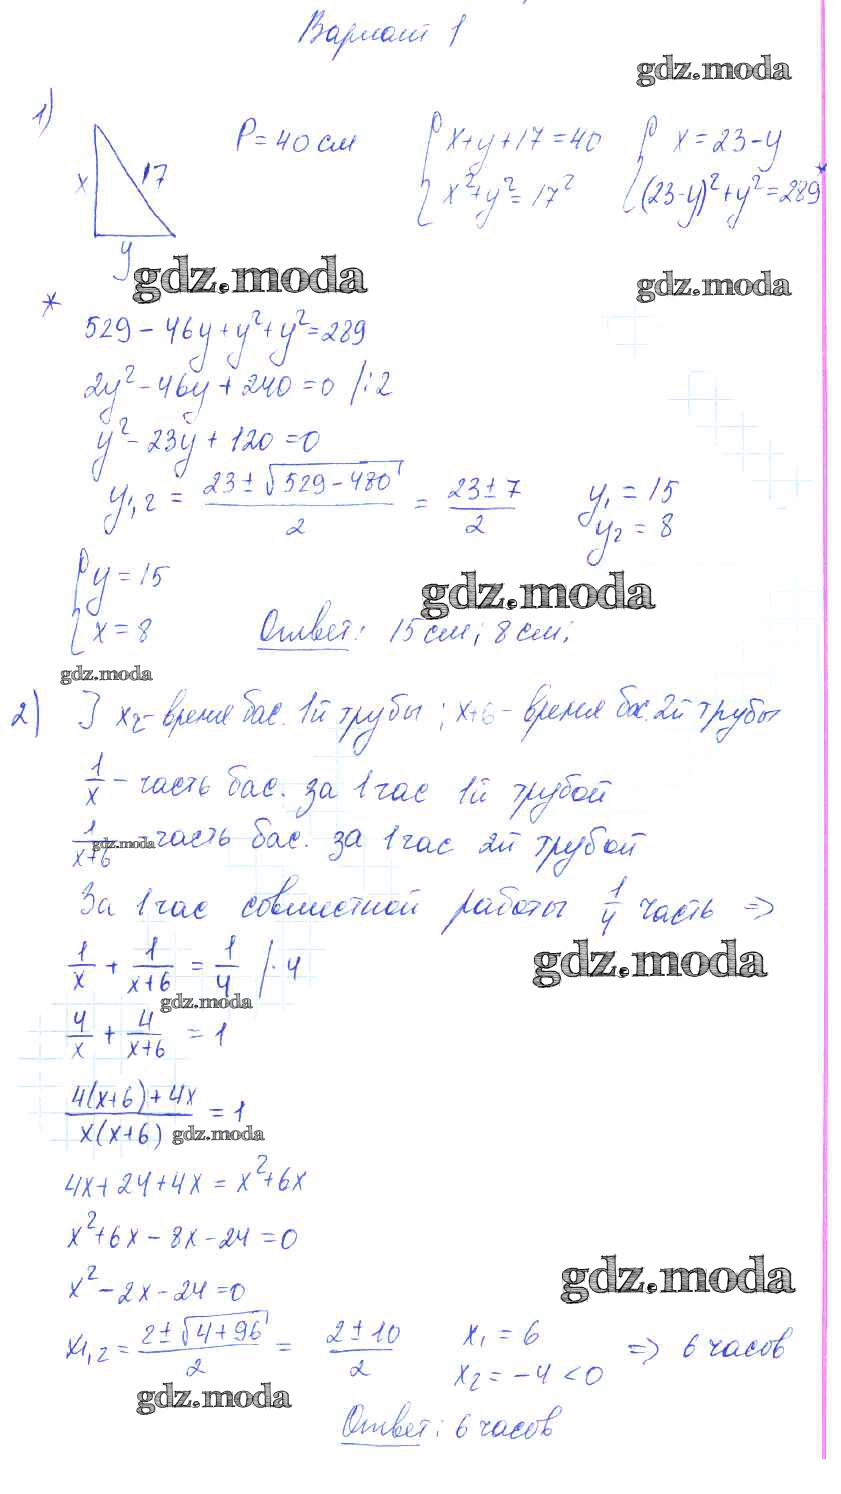 Вариант 1
gdz.moda
1)
P = 40 см
{ x+y+17=40
{ x²+y²=17²
{ x=23-y
{ (23-y)²+y²=289 *
x
17
y
gdz.moda
gdz.moda
*
529-46y+y²+y²=289
2y²-46y+240=0 /:2
y²-23y+120=0
y₁,₂ = (23±√(529-480))/2 = (23±7)/2
y₁=15
y₂=8
{ y=15
{ x=8
gdz.moda
Ответ: 15 см; 8 см;
gdz.moda
2) ] x - время бас. 1й трубы; x+6 - время бас. 2й трубы
1/x - часть бас. за 1 час 1й трубой
1/(x+6) gdz.moda часть бас. за 1 час 2й трубой
За 1 час совместной работы 1/4 часть =>
1/x + 1/(x+6) = 1/4 /·4
gdz.moda
gdz.moda
4/x + 4/(x+6) = 1
(4(x+6)+4x)/(x(x+6)) = 1
gdz.moda
4x+24+4x=x²+6x
x²+6x-8x-24=0
x²-2x-24=0
gdz.moda
x₁,₂ = (2±√(4+96))/2 = (2±10)/2
x₁=6
x₂=-4<0
=> 6 часов
gdz.moda
Ответ: 6 часов